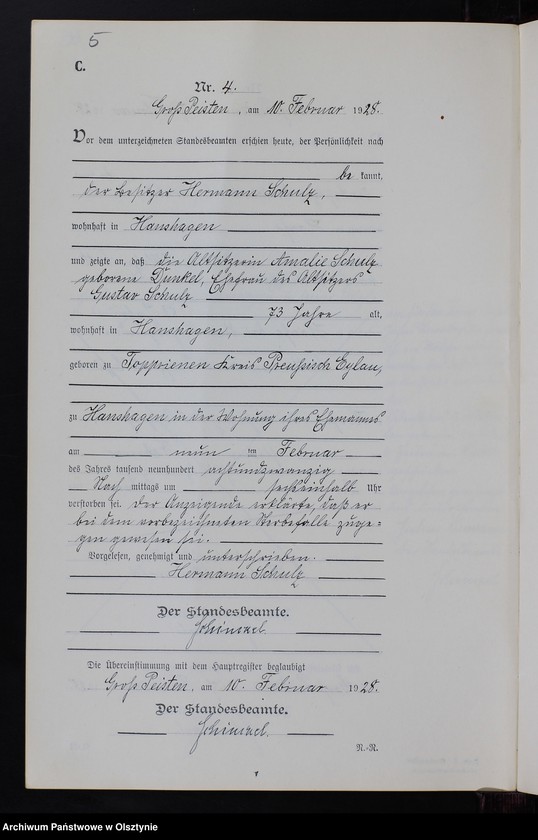 5
C.
Nr. 4.
Groß Peisten, am 10. Februar 1928.
Vor dem unterzeichneten Standesbeamten erschien heute, der Persönlichkeit nach
be kannt,
der Besitzer Hermann Schulz,
wohnhaft in Hanshagen
und zeigte an, daß die Altsitzerin Amalie Schulz
geborene Dunkel, Ehefrau des Altsitzers
Gustav Schulz
73 Jahre alt,
wohnhaft in Hanshagen,
geboren zu Topprienen Kreis Preußisch Eylau,
zu Hanshagen in der Wohnung ihres Ehemanns
am neun ten Februar
des Jahres tausend neunhundert achtundzwanzig
Nach mittags um sechseinhalb Uhr
verstorben sei. Der Anzeigende erklärte, daß er
bei dem vorbezeichneten Sterbefalle zuge=
gen gewesen sei.
Vorgelesen, genehmigt und unterschrieben.
Hermann Schulz
Der Standesbeamte.
Schimkel
Die Übereinstimmung mit dem Hauptregister beglaubigt
Groß Peisten, am 10. Februar 1928.
Der Standesbeamte.
Schimkel.
N.-R.
Archiwum Państwowe w Olsztynie